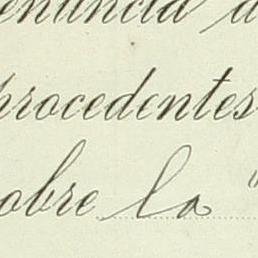 enuncia a
procedentes
obre la "